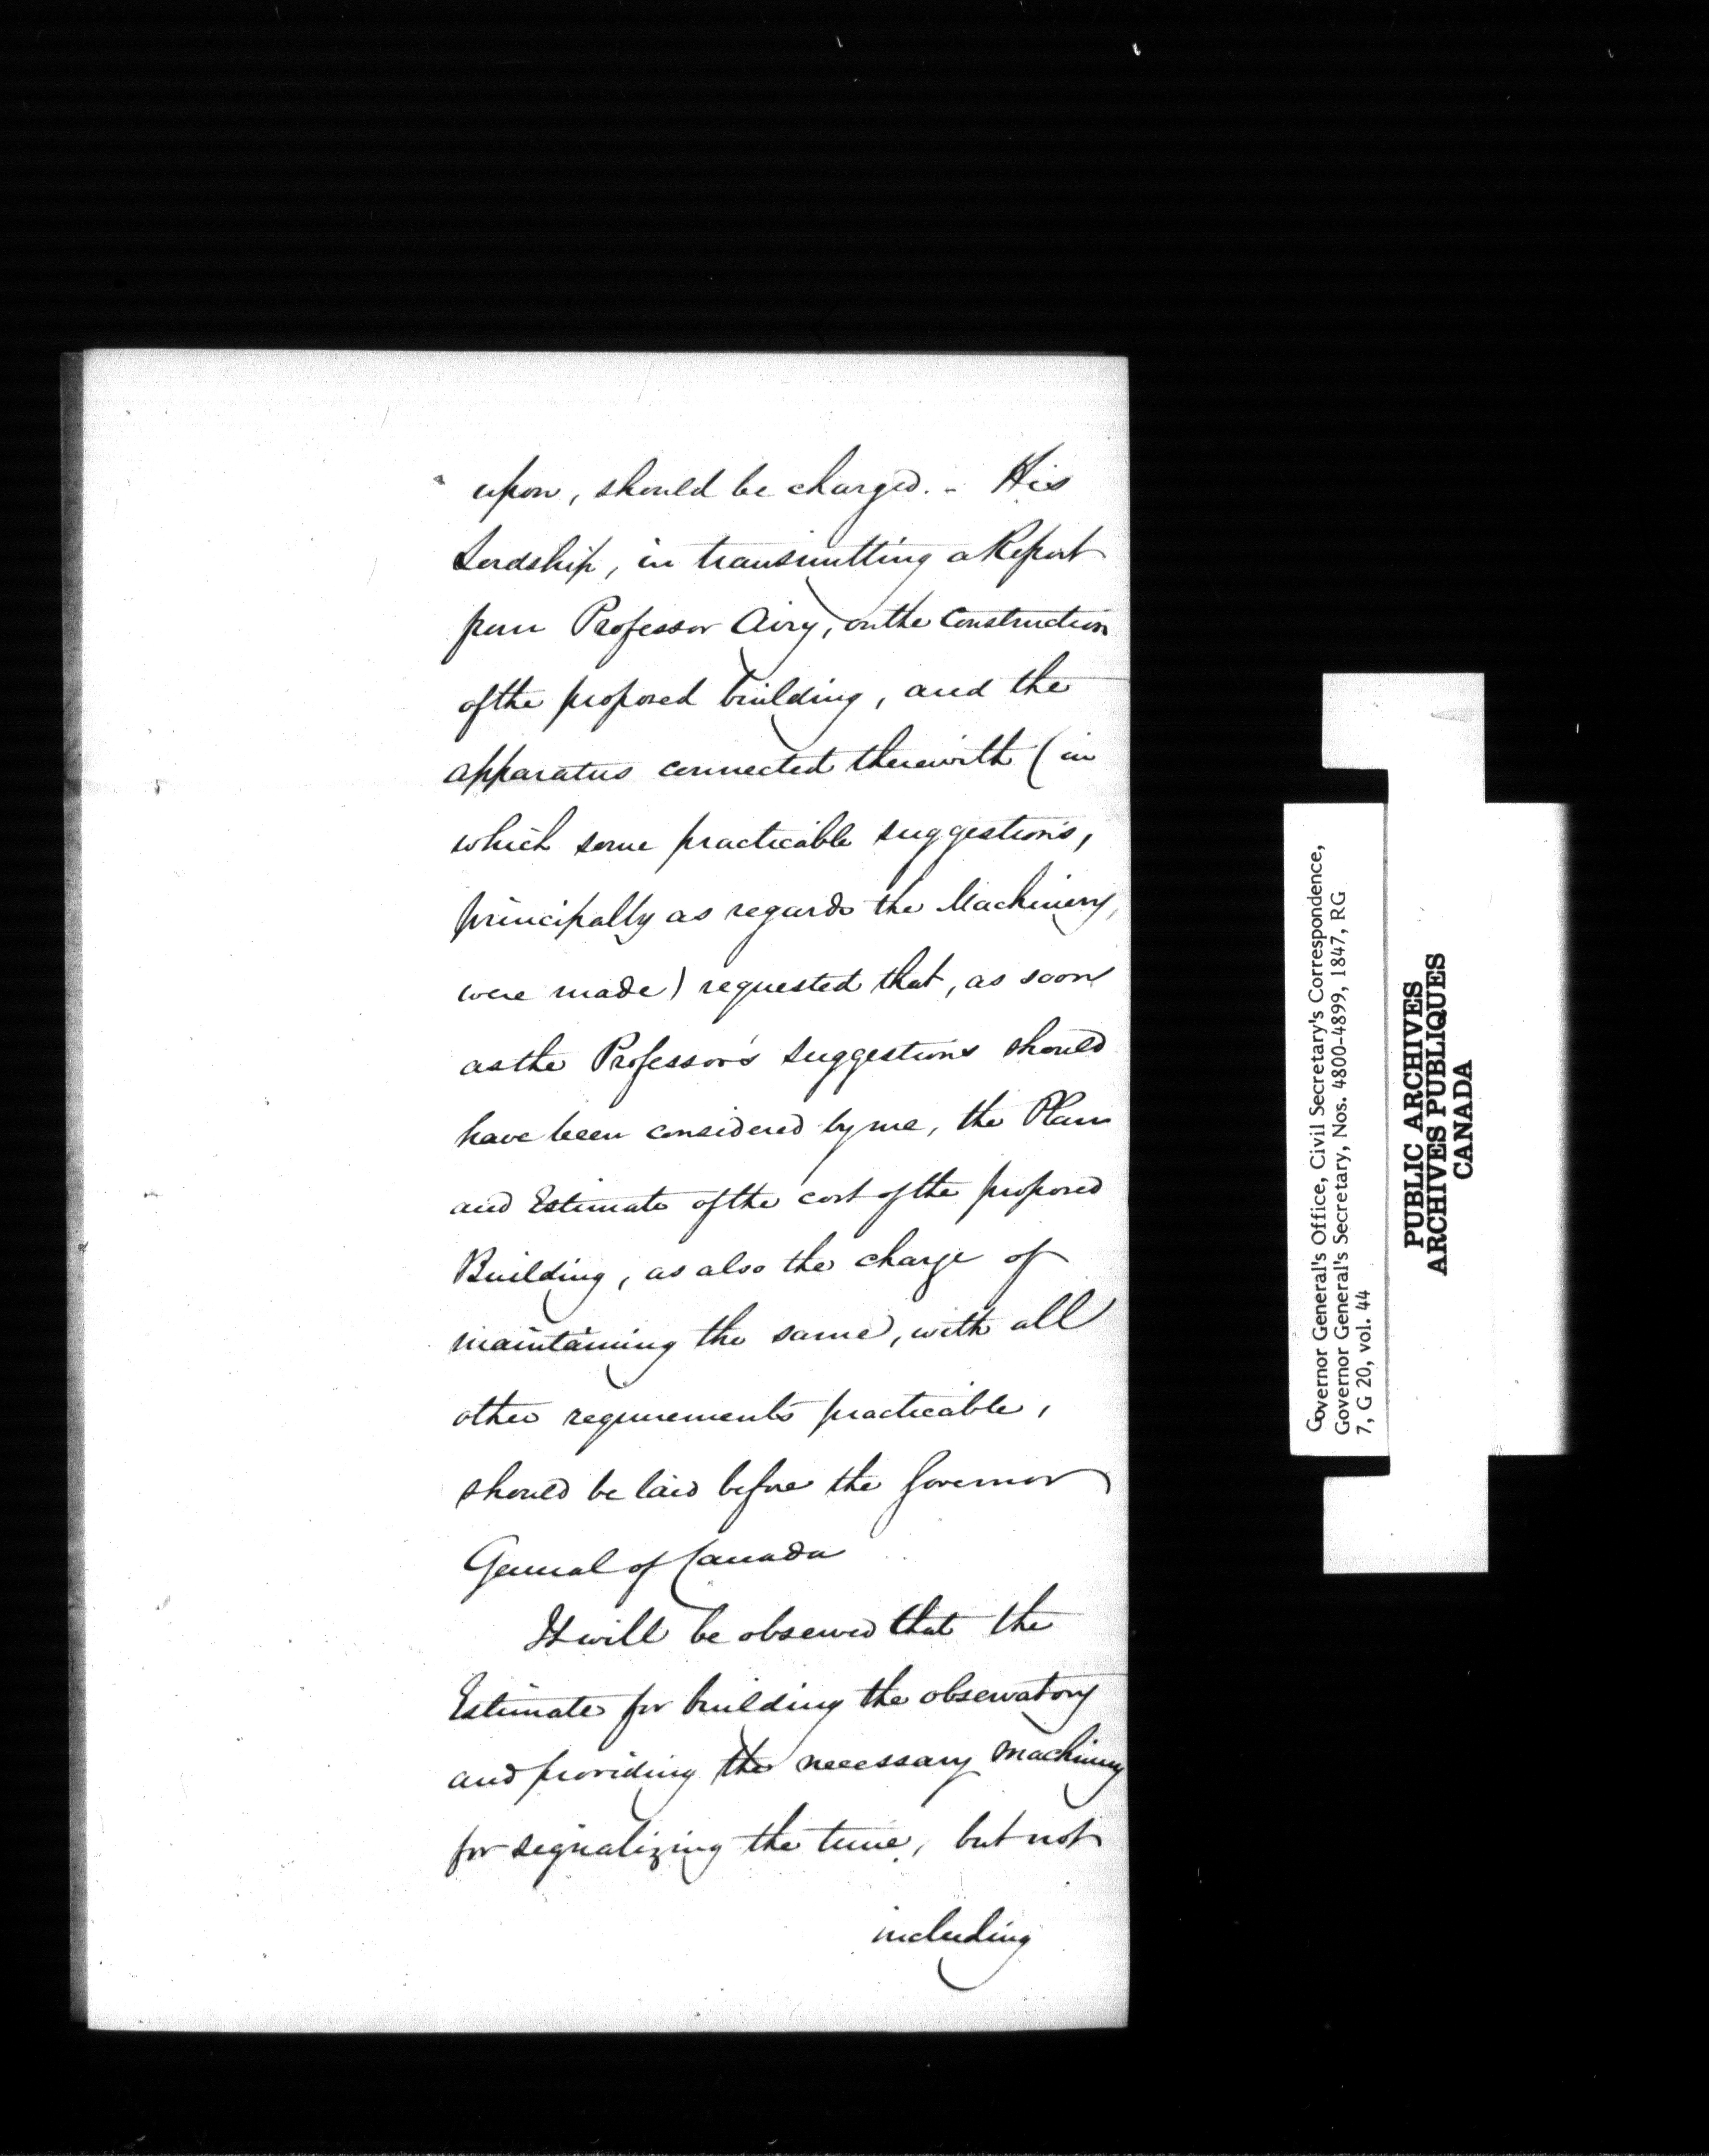 upon, should be charged. - His
Lordship, in transmitting a Report
from Professor Airy, on the Construction
of the proposed building, and the
apparatus connected therewith (in
which some practicable suggestions,
principally as regards the Machinery,
were made) requested that, as soon
as the Professor's suggestions should
have been considered by me, the Plan
and Estimate of the cost of the proposed
Building, as also the charge of
maintaining the same, with all
other requirements practicable,
should be laid before the Governor
General of Canada
It will be observed that the
Estimate for building the observatory
and providing the necessary machinery
for signalizing the time, but not
including
Governor General's Office, Civil Secretary's Correspondence,
Governor General's Secretary, Nos. 4800-4899, 1847, RG
7, G 20, vol. 44
PUBLIC ARCHIVES
ARCHIVES PUBLIQUES
CANADA